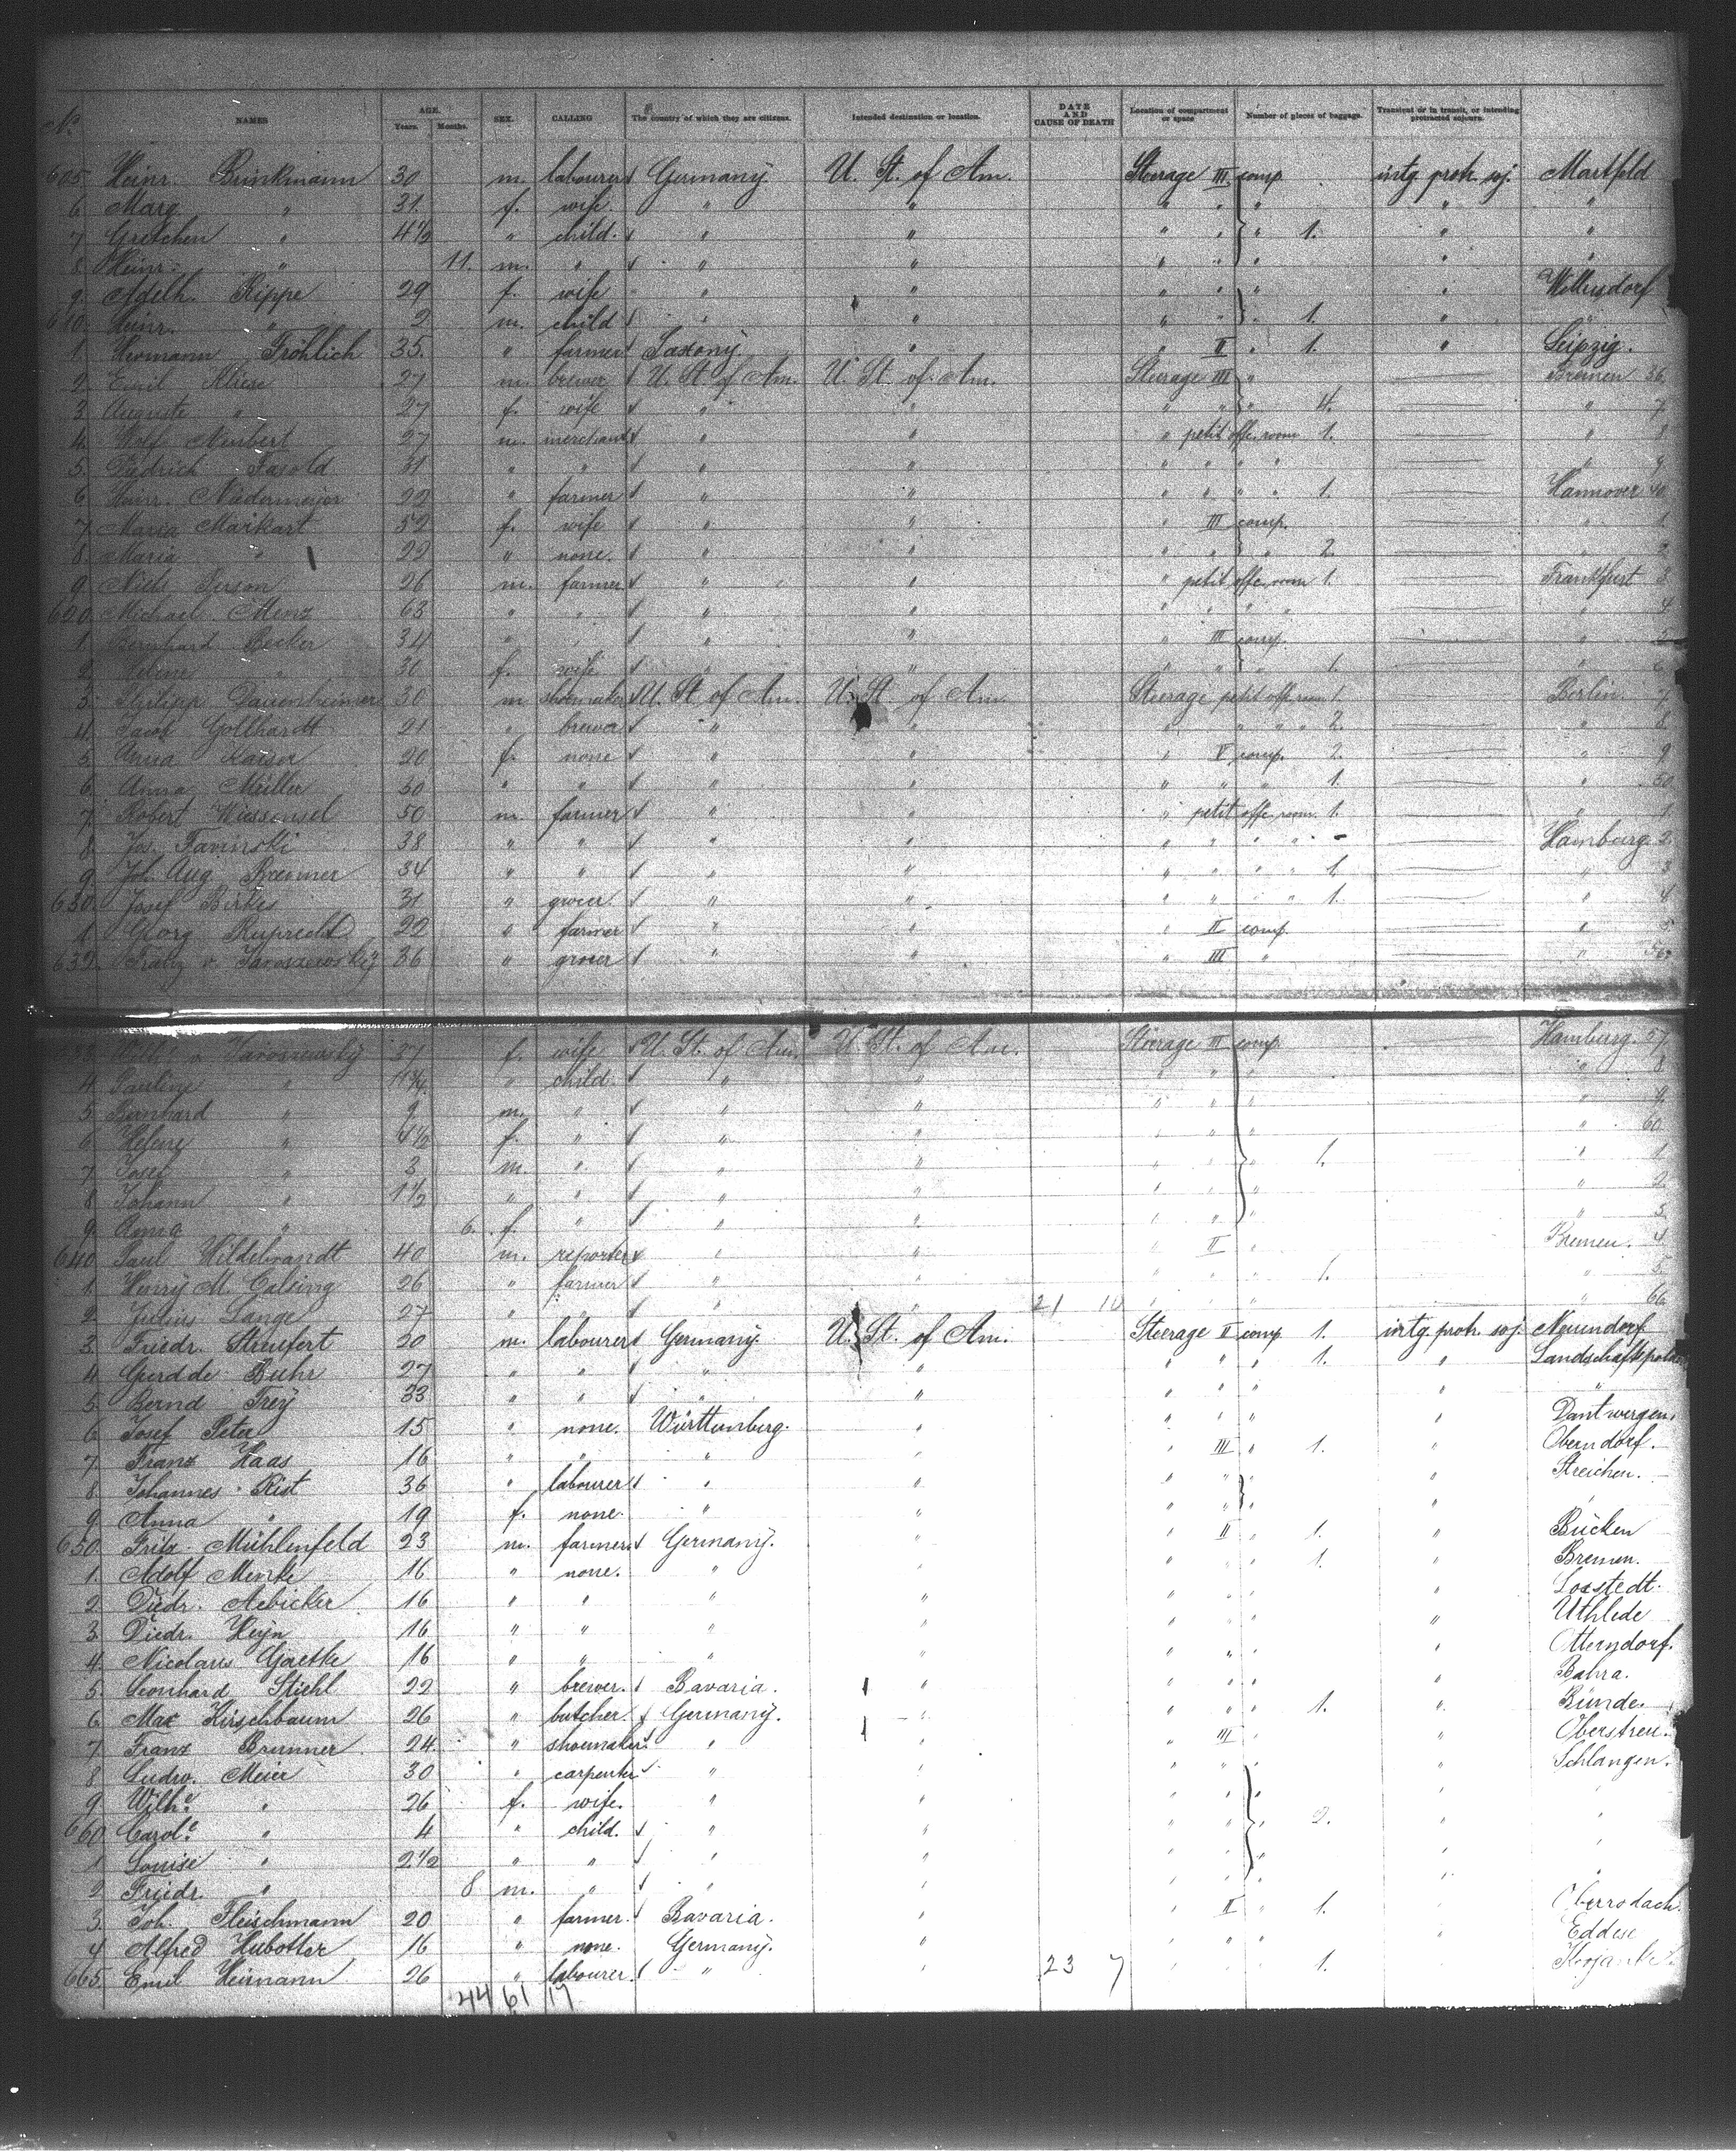 No. NAMES AGE. Years. Months. SEX. CALLING The country of which they are citizens. Intended destination or location. DATE AND CAUSE OF DEATH Location of compartment or space Number of pieces of baggage. Transient or in transit, or intending protracted sojourn.
605 Heinr. Brinkmann 30 m. labourer Germany. U. St. of Am. Steerage III comp. intg. protr. soj. Martfeld
6 Marg. " 31. f. wife " " " " " " "
7 Gretchen " 4 1/2 " child. " " " " " 1. " "
8 Heinr. " 11. m. " " " " " " "
9. Adelh. Rippe 29 f. wife " " " " " "
610. Heinr. " 2 m. child " " " " " 1. "
1. Hermann Fröhlich 35. " farmer Saxony. " " II " 1. " Leipzig.
2. Emil 27 m. brewer U. St. of Am. U. St. of Am. Steerage III " Bremen 36
3 Auguste " 27 f. wife " " " " " 4. " 7
4. Neubert 27 m. merchant " " " petit offc. room 1. " 8
5. Diedrich Fasold 31 " " " " " " " " 9
6 Heinr. Niedermeijer 22 " farmer " " " " " " 1. Hannover 40
7. Maria Markart 52 f. wife " " " III comp. " 1
8. Maria " 22 " none. " " " " " 2. " 2
9 Niels 26 m. farmer " " " petit offc. room 1. Frankfurt 3
620 Michael Menz 63 " " " " " " " " 4
1. Bernhard Becker 34 " " " " " III comp. " 5
2 Helene " 31 f. wife " " " " " 1. " 6
3. Philipp Dauenheimer 30 m shoemaker U. St. of Am. U. St. of Am. Steerage petit offc. room 1. Berlin. 7
4. Jacob Gollhardt 21 " brewer " " " " " " 2. " 8
5. Anna Kaiser 20 f. none " " " V comp. 2. " 9
6. Anna Müller 30 " " " " " " " 1. " 50
7. Robert 50 m. farmer " " " petit offc. room. 1. " 1.
8 Jos. 38 " " " " " " " " - Hamburg. 2.
9 Joh. Aug. 34 " " " " " " " " 1. " 3
630. Josef Birkes 31 " grocer " " " " " " 1. " 4
1 Georg Ruprecht 22 " farmer " " " II comp. " 5
632. Franz v. Jaroszewskij 36 " grocer " " " III " " 56
633 v. Jaroszewskij 37 f. wife U. St. of Am. U. St. of Am. Steerage III comp. Hamburg. 57.
4. Pauline " 11 " child. " " " " " " 8
5. Bernhard " 9 m. " " " " " " " 9.
6 Helene " 4 1/2 f. " " " " " " " 60
7 Josef " 3 m. " " " " " " 1. " 1
8 Johann " 1 1/2 " " " " " " " " 2
9. Anna " 6. f. " " " " " " 3.
640. Paul Hildebrandt 40 m. reporter " " " II " Bremen. 4
1. Henry M. 26 " farmer " " " " " 1. " 5.
2. Julius Lange 27 " " " " 21 10 " " " " 66
3. Friedr. Streufert 20 m. labourer Germany. U. St. of Am. Steerage II comp. 1. intg. protr. soj. Neuendorf
4 Gerd de Buhr 27 " " " " " " " 1. "
5. Bernd Frey 33 " " " " " " " " "
6 Josef Peter 15 " none. Württemberg. " " " " "
7 Franz Haas 16 " " " " " III " 1. " Oberndorf.
8. Johannes Rist 36 " labourer " " " " " " Streichen.
9. Anna " 19 f. none. " " " " " " "
650. Fritz Mühlenfeld 23 m. farmer Germany. " " II " 1. " Bücken
1. Adolf Menke 16 " none. " " " " " 1. " Bremen.
2. Diedr. Aebicker 16 " " " " " " " " Loxstedt.
3. Diedr. Heijn 16 " " " " " " " " Uthlede
4. Nicolaus Gaetke 16 " " " " " " " " Otterndorf.
5. Leonhard Stiehl 22 " brewer. Bavaria. " " " " " Bahra.
6. Max Hirschbaum 26 " butcher Germany. " " " " 1. " Bünde.
7 Franz Brunner 24. " shoemaker " " " III " " Oberstreu.
8 Ludw. Meier 30 " carpenter " " " " " " Schlangen.
9 Wilh.e " 26 f. wife. " " " " " " "
660 Carol.e " 4 " child. " " " " " 2. " "
1 Louise " 2 1/2 " " " " " " " " "
2 Friedr. " 8 m. " " " " " " " "
3. Joh. Fleischmann 20 " farmer. Bavaria. " " II " 1. " Oberrodach.
4 Alfred Hubotter 16 " none. Germany. " " " " " Eddese
665. Emil Heimann 26 " labourer. " " 23 7 " " " 1. "
44 61 17